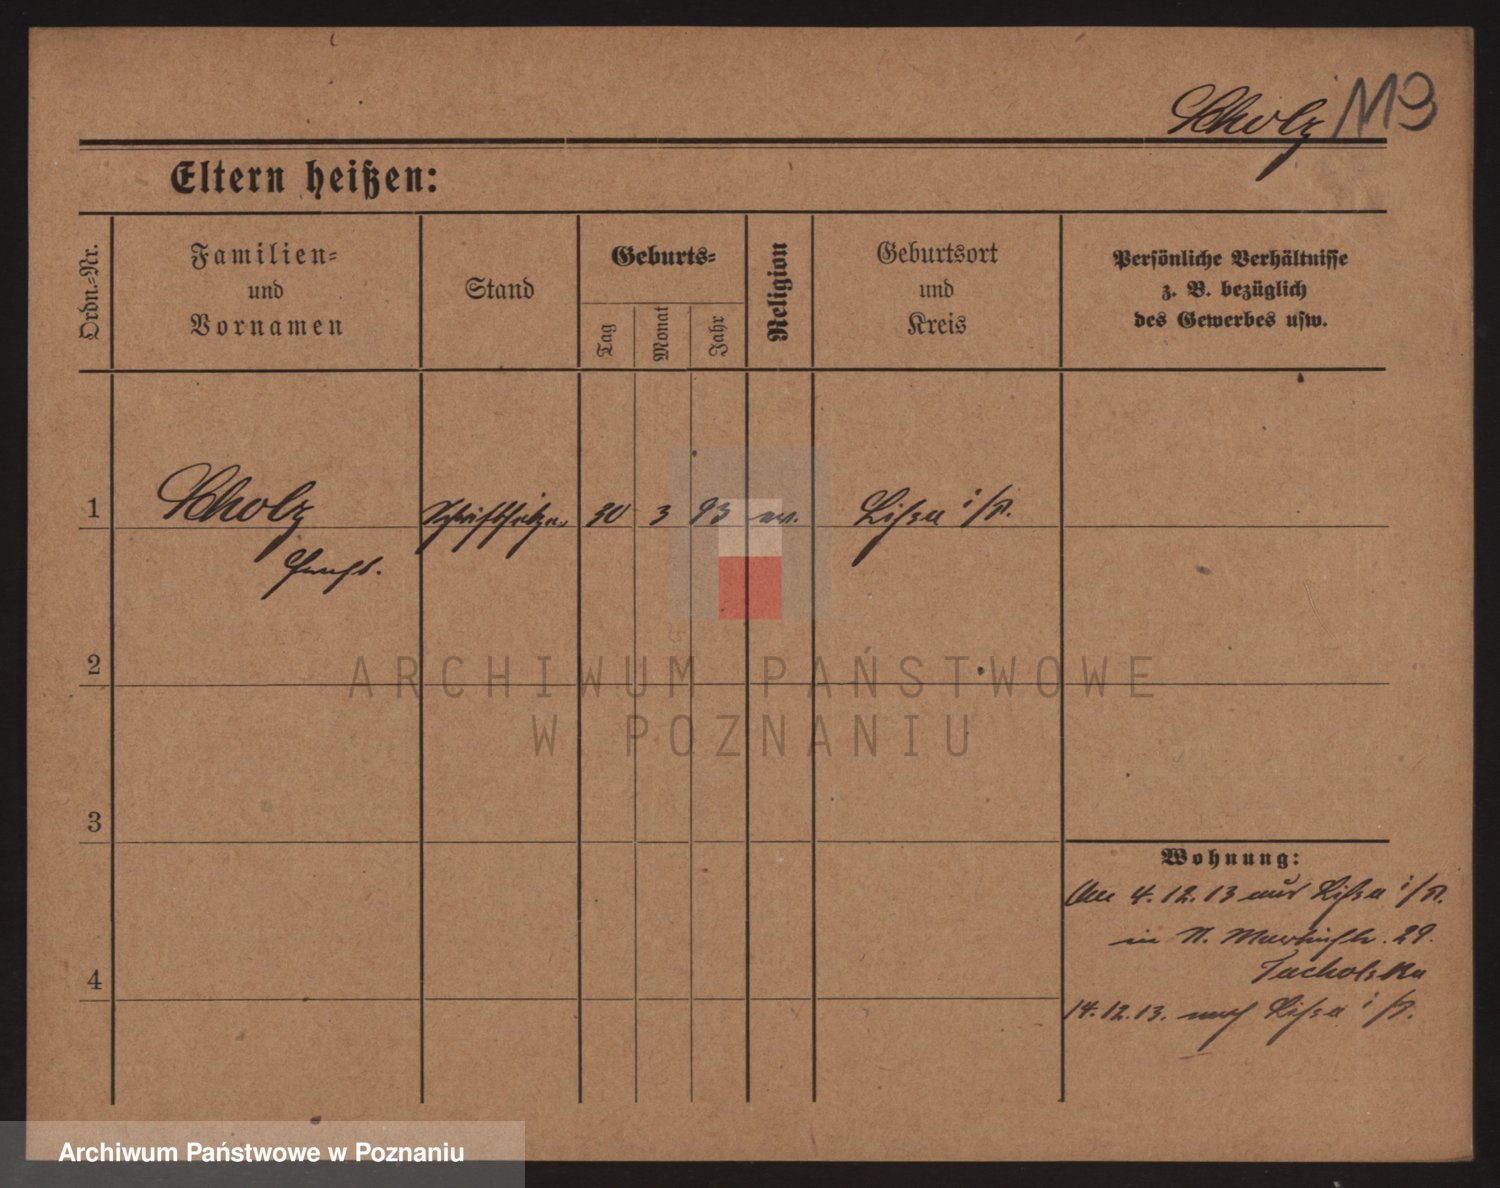 Scholz 119
Eltern heißen:
Ordn.=Nr.
Familien=
und
Vornamen
Stand
Geburts=
Tag
Monat
Jahr
Religion
Geburtsort
und
Kreis
Persönliche Verhältnisse
z. B. bezüglich
des Gewerbes usw.
1 Scholz Schriftsetzer 30 3 93 ev. Lissa i/P.
2
ARCHIWUM PAŃSTWOWE
W POZNANIU
3
Wohnung:
4. 12. 13 aus Lissa i/P.
in St. Martinstr. 29.
4
14.12.13. nach Lissa i/P.
Archiwum Państwowe w Poznaniu